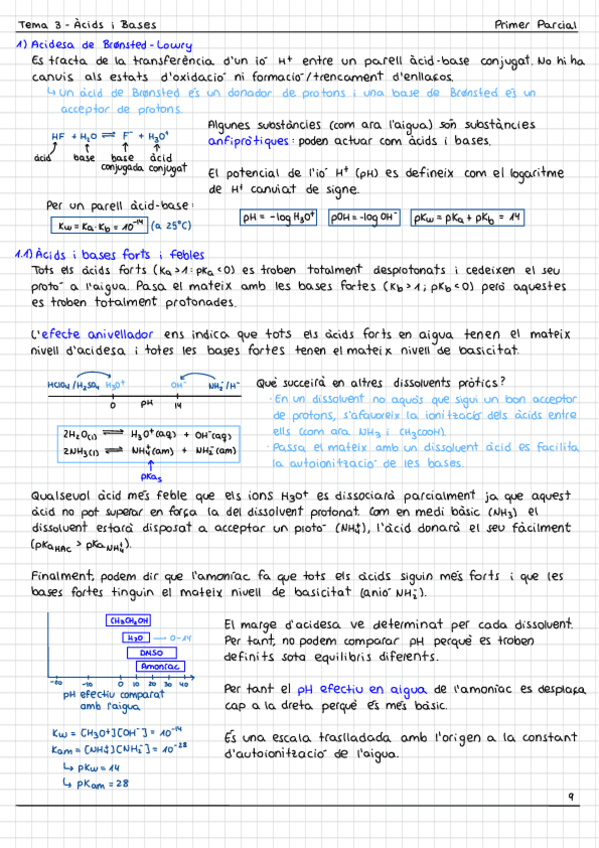 Tema 3 - Àcids i Bases
Primer Parcial
1) Acidesa de Brønsted-Lowry
Es tracta de la transferència d'un ió H⁺ entre un parell àcid-base conjugat. No hi ha
canvis als estats d'oxidació ni formació/trencament d'enllaços.
↳ Un àcid de Brønsted és un donador de protons i una base de Brønsted és un
acceptor de protons.
HF + H₂O ⇌ F⁻ + H₃O⁺
àcid base base àcid
conjugada conjugat
Algunes substàncies (com ara l'aigua) són substàncies
anfipròtiques: poden actuar com àcids i bases.
El potencial de l'ió H⁺ (pH) es defineix com el logaritme
de H⁺ canviat de signe.
Per un parell àcid-base:
Kw = Ka·Kb = 10⁻¹⁴ (a 25°C)
pH = -log H₃O⁺
pOH = -log OH⁻
pKw = pKa + pKb = 14
1.1) Àcids i bases forts i febles
Tots els àcids forts (Ka > 1 : pKa < 0) es troben totalment desprotonats i cedeixen el seu
protó a l'aigua. Pasa el mateix amb les bases fortes (Kb > 1 ; pKb < 0) però aquestes
es troben totalment protonades.
L'efecte anivellador ens indica que tots els àcids forts en aigua tenen el mateix
nivell d'acidesa i totes les bases fortes tenen el mateix nivell de basicitat.
HClO₄/H₂SO₄ H₃O⁺ OH⁻ NH₂⁻/H⁻
0 pH 14
2H₂O(l) ⇌ H₃O⁺(aq) + OH⁻(aq)
2NH₃(l) ⇌ NH₄⁺(am) + NH₂⁻(am)
pKas
Què succeirà en altres dissolvents pròtics?
· En un dissolvent no aquós que sigui un bon acceptor
de protons, s'afavoreix la ionització dels àcids entre
ells (com ara NH₃ i CH₃COOH).
· Passa el mateix amb un dissolvent àcid es facilita
la autoionització de les bases.
Qualsevol àcid més feble que els ions H₃O⁺ es dissociarà parcialment ja que aquest
àcid no pot superar en força la del dissolvent protonat. Com en medi bàsic (NH₃) el
dissolvent estarà disposat a acceptar un protó (NH₄⁺), l'àcid donarà el seu fàcilment
(pKa HAc > pKa NH₄⁺).
Finalment, podem dir que l'amoníac fa que tots els àcids siguin més forts i que les
bases fortes tinguin el mateix nivell de basicitat (anió NH₂⁻).
CH₃CH₂OH
H₂O 0-14
DMSO
Amoníac
-20 -10 0 10 20 30 40
pH efectiu comparat
amb l'aigua
El marge d'acidesa ve determinat per cada dissolvent.
Per tant, no podem comparar pH perquè es troben
definits sota equilibris diferents.
Per tant el pH efectiu en aigua de l'amoníac es desplaça
cap a la dreta perquè és més bàsic.
Kw = [H₃O⁺][OH⁻] = 10⁻¹⁴
Kam = [NH₄⁺][NH₂⁻] = 10⁻²⁸
↳ pKw = 14
↳ pKam = 28
És una escala traslladada amb l'origen a la constant
d'autoionització de l'aigua.
9